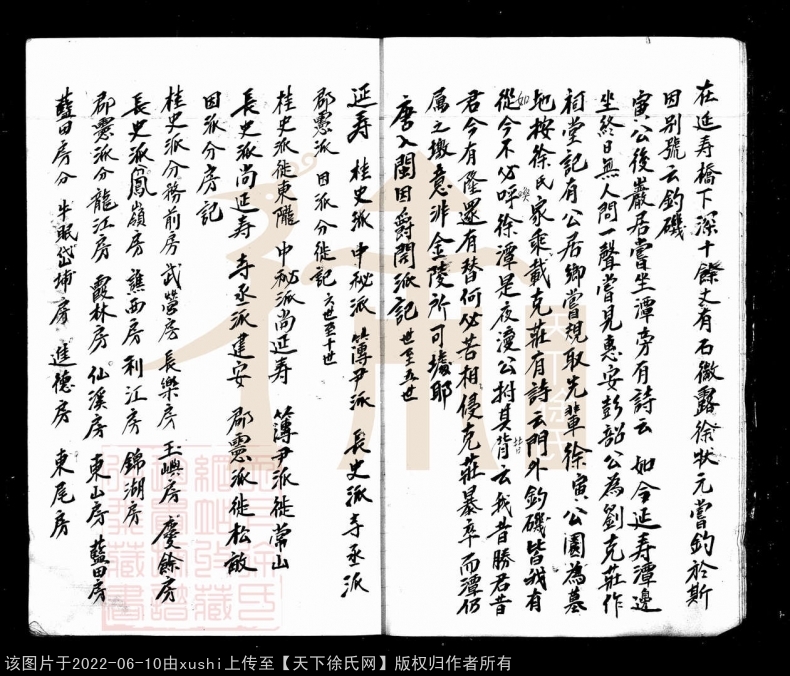 在延寿橋下深十餘丈有石微露徐状元嘗釣於斯
因别號云釣磯
寅公後巖居嘗坐潭旁有詩云 如今延寿潭邊
坐終日無人問一聲嘗見惠安彭韶公為劉克莊作
祠堂記有公居鄉嘗規取先輩徐寅公園為墓
地按徐氏家乘載克莊有詩云門外釣磯皆我有
從今不必呼徐潭是夜漫公拊其背云我昔勝君昔
君今有隆還有替何必苦相侵克莊暴卒而潭仍
属之墩意非金陵所可據耶
唐入閩因爵閥派記 世至五世
延寿 桂史派 中秘派 簿尹派 長史派 寺丞派
郡憲派 因派分徙記 六世至十世
桂史派徙東隴 中秘派尚延寿 簿尹派徙常山
長史派尚延寿 寺丞派建安 郡憲派徙松
因派分房記
桂史派分務前房 武營房 長樂房 玉嶼房 慶餘房
長史派鳳嶺房 西房 利江房 錦湖房
郡憲派分龍江房 霞林房 仙溪房 東山房 藍田房
藍田房分 牛眠 埔房 進德房 東尾房
天下徐氏
该图片于2022-06-10由xushi上传至【天下徐氏网】版权归作者所有